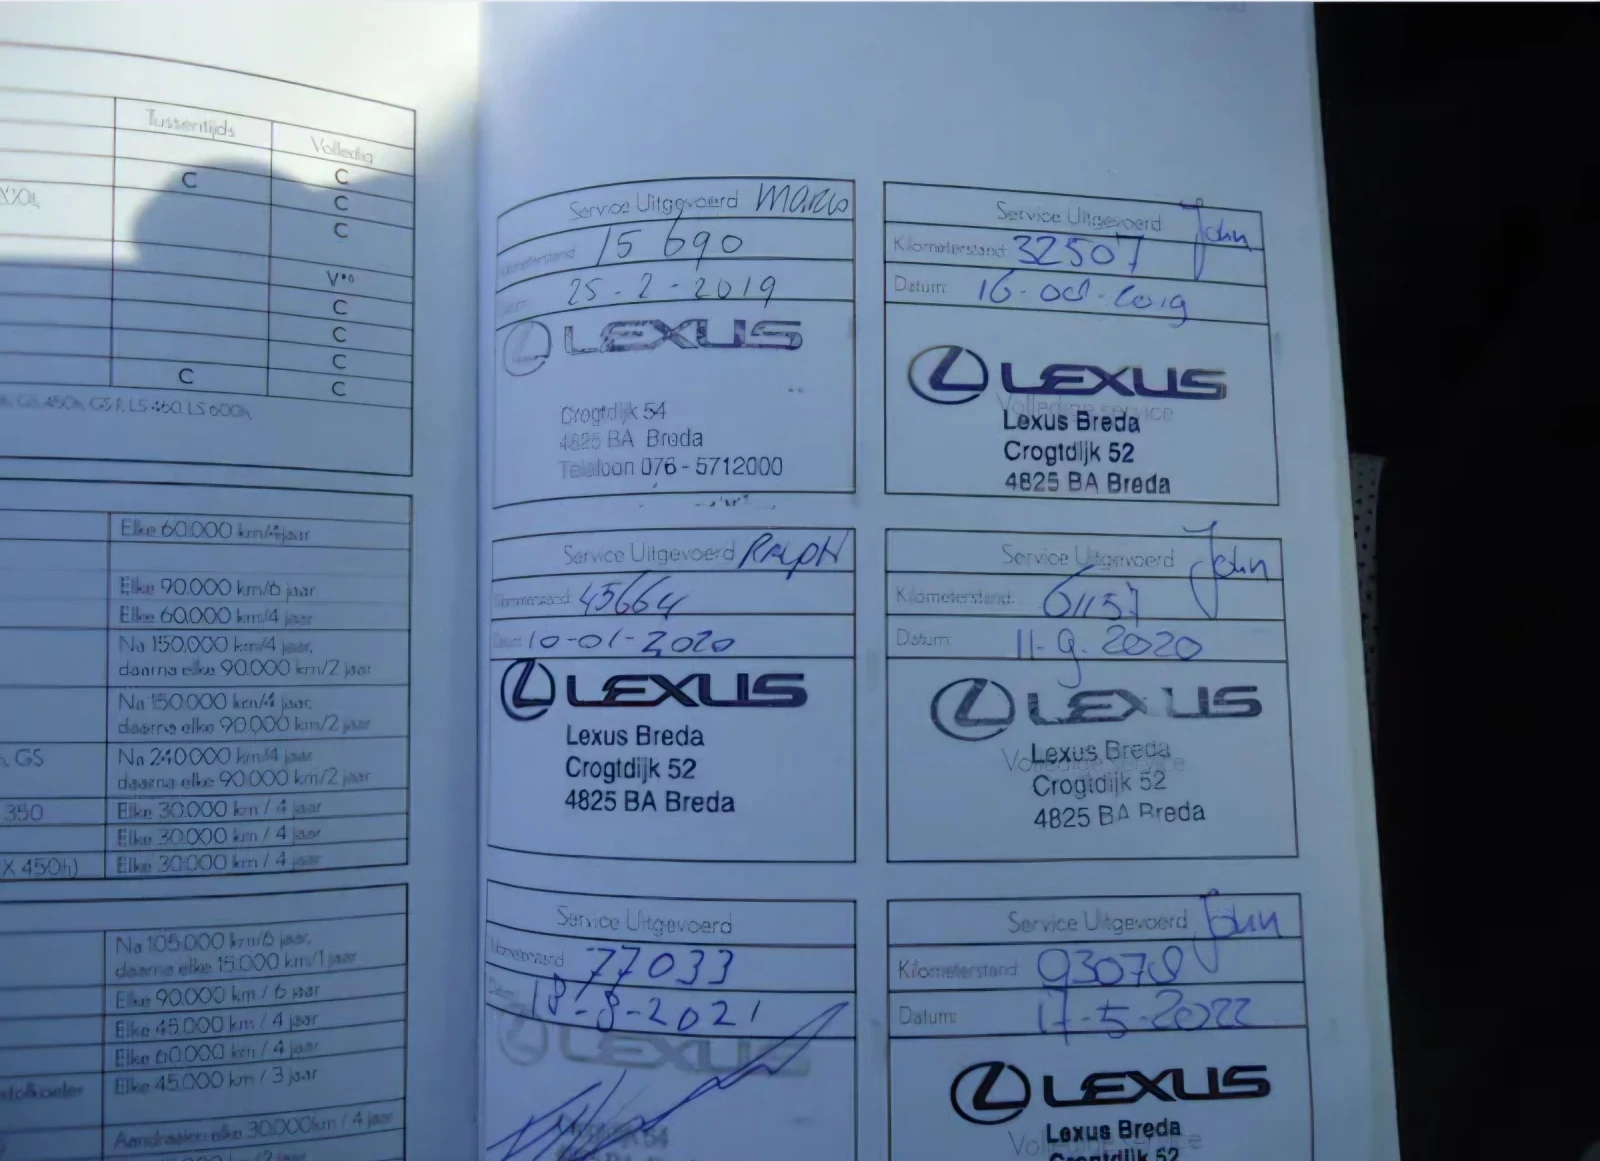 Tussentijds Volledig
C C
C
C
V
C
C
C
C C
GS 450h, GS F, LS 460, LS 600h
Elke 60.000 km/4 jaar
Elke 90.000 km/6 jaar
Elke 60.000 km/4 jaar
Na 150.000 km/4 jaar,
daarna elke 90.000 km/2 jaar
Na 150.000 km/4 jaar,
daarna elke 90.000 km/2 jaar
GS Na 240.000 km/4 jaar
daarna elke 90.000 km/2 jaar
350 Elke 30.000 km / 4 jaar
Elke 30.000 km / 4 jaar
X 450h) Elke 30.000 km / 4 jaar
Na 105.000 km/6 jaar,
daarna elke 15.000 km/1 jaar
Elke 90.000 km / 6 jaar
Elke 45.000 km / 4 jaar
Elke 60.000 km / 4 jaar
Elke 45.000 km / 3 jaar
Aandraaien elke 30.000km / 4 jaar
Service Uitgevoerd Marco
Kilometerstand: 15 690
Datum: 25-2-2019
LEXUS
Crogtdijk 54
4825 BA Breda
Telefoon 076 - 5712000
Service Uitgevoerd John
Kilometerstand: 32507
Datum: 16-08-2019
LEXUS
Volledige service
Lexus Breda
Crogtdijk 52
4825 BA Breda
Service Uitgevoerd Ralph
Kilometerstand: 45664
Datum: 10-01-2020
LEXUS
Lexus Breda
Crogtdijk 52
4825 BA Breda
Service Uitgevoerd John
Kilometerstand: 61157
Datum: 11-9-2020
LEXUS
Lexus Breda
Volledige service
Crogtdijk 52
4825 BA Breda
Service Uitgevoerd
Kilometerstand 77033
Datum: 18-8-2021
LEXUS
54
Breda
Service Uitgevoerd John
Kilometerstand 93078
Datum: 17-5-2022
LEXUS
Lexus Breda
Volledige service
Crogtdijk 52